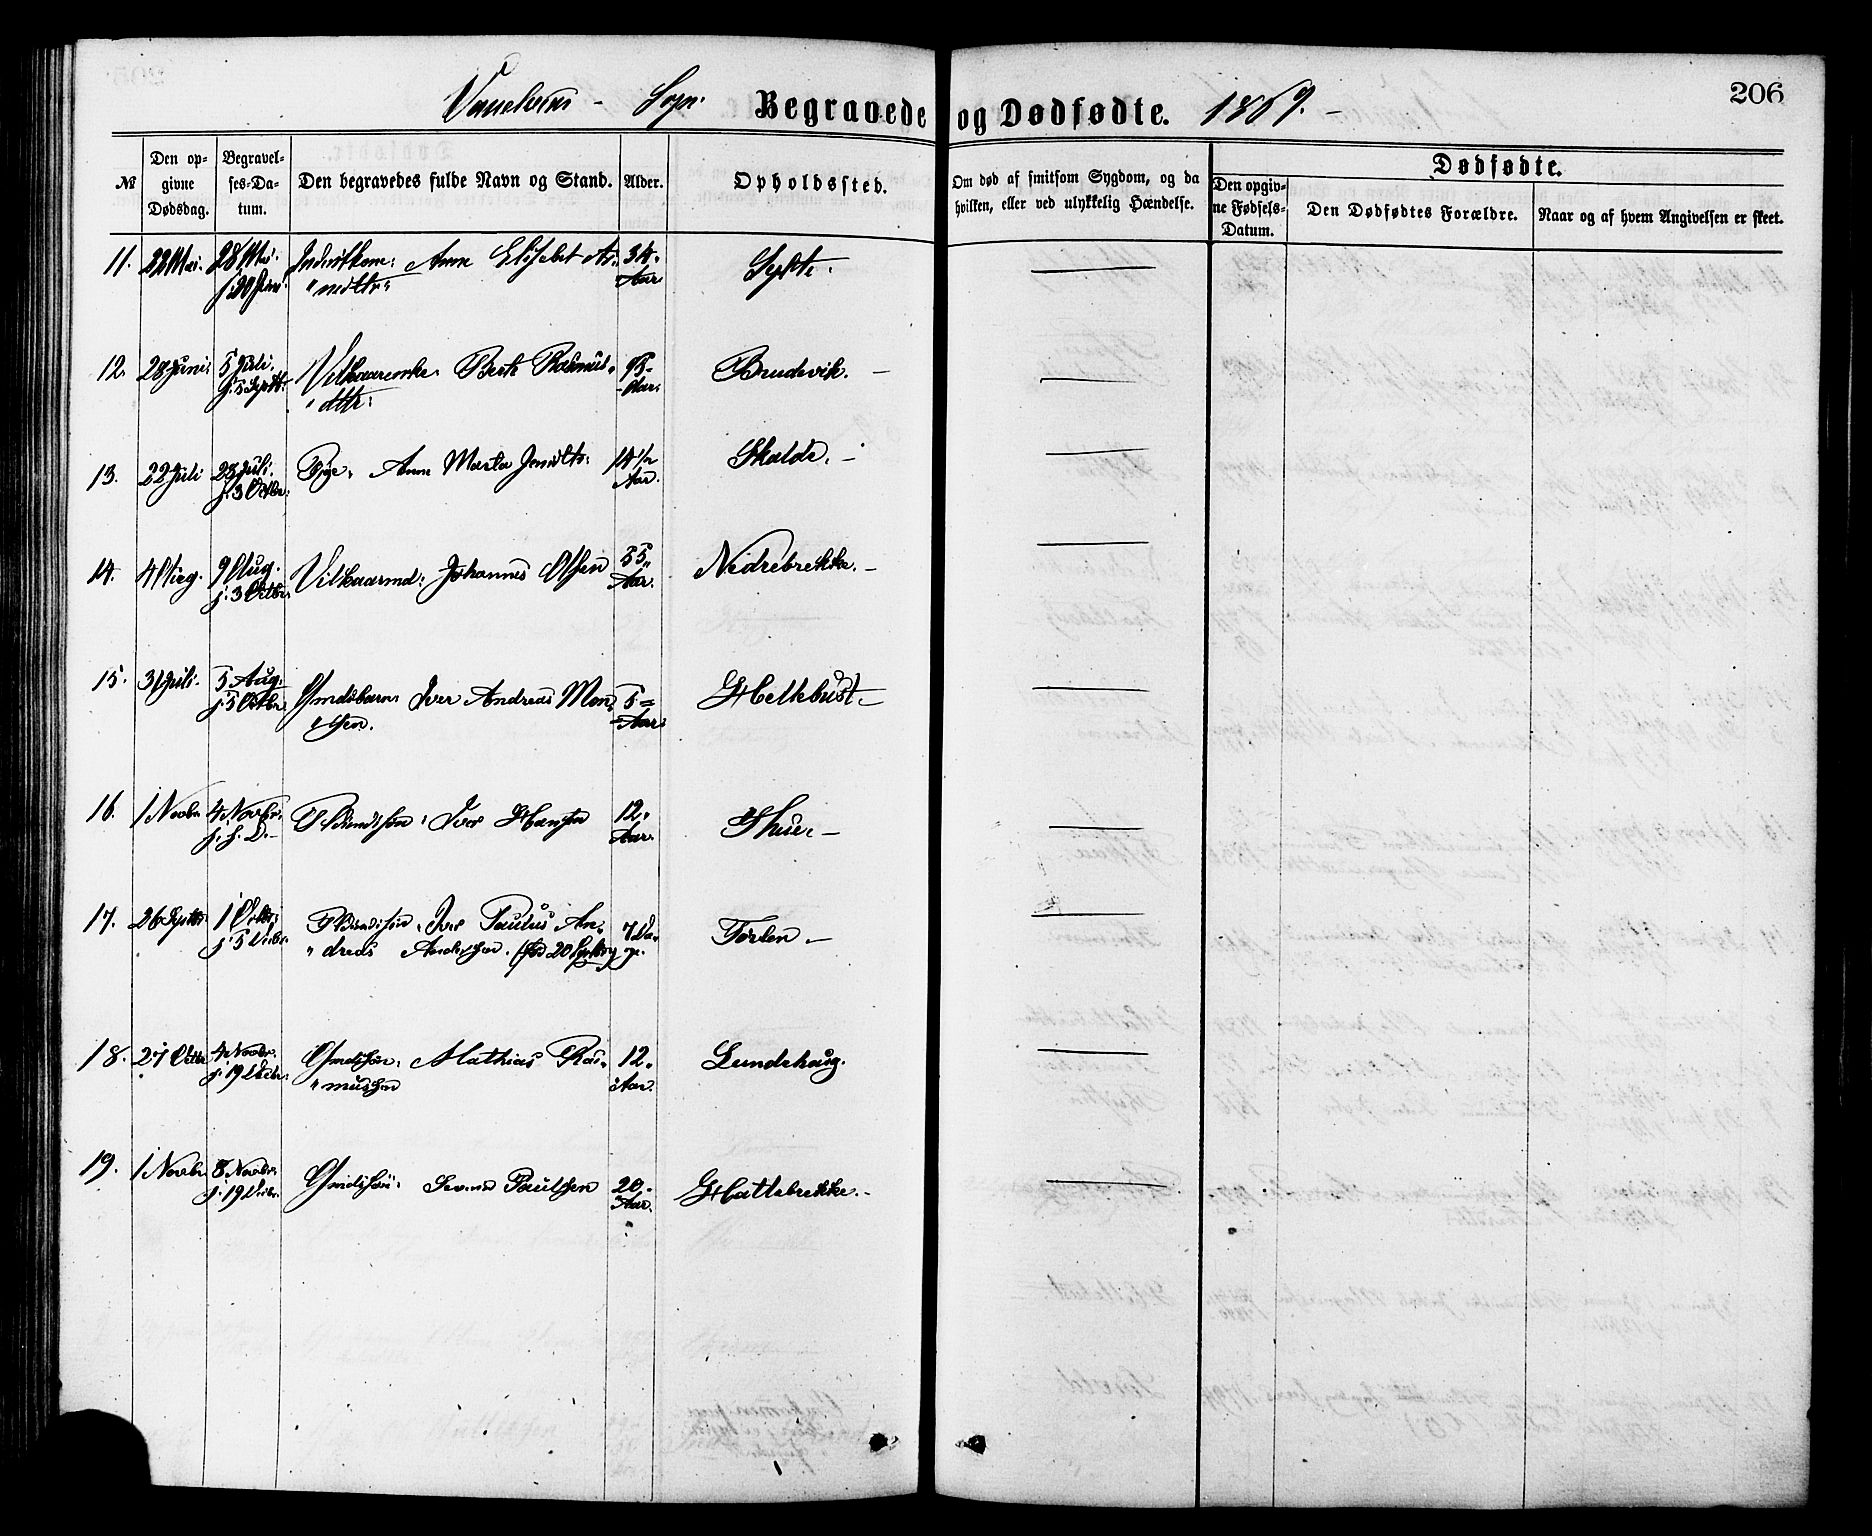 Vanelvens - Sogn. Begravede og Dødfødte. 1869. -
206
№
Den opgivne Dødsdag.
Begravelses-Datum.
Den begravedes fulde Navn og Stand.
Alder.
Opholdssted.
Om død af smitsom Sygdom, og da hvilken, eller ved ulykkelig Hændelse.
Dødfødte.
Den opgivne Fødsels-Datum.
Den Dødfødtes Forældre.
Naar og af hvem Angivelsen er skeet.
11. 22 Mai. 28 Mai. Anne Elisabet Ar- 34. Sykte.
j. 20 Juni. "ndtr" Aar.
12. 28 Juni. 5 Juli. Vilkaarenke. Berte Rasmus- 95- Brudevik. -
j. 5 Septbr. "dttr. Aar.
13. 22 Juli 28 Juli. Pige. Anne Marta 14 1/2 Skalde. -
j. 3 Octbr. Aar.
14. 4 Aug. 9 Aug. Vilkaarmd. Johannes Olsen 55" Nedrebrekke. -
j. 3 Octbr. Aar.
15. 31 Juli. 5 Aug. Gmdsbarn. Iver Andreas Mon- 5= Helkebust -
j. 5 Octbr. "sen. Aar.
16. 1 Novbr. 4 Novbr. Iver Hansen 12. Thue. -
j. s. D. - Aar.
17. 26 Septbr 1 Octbr. Iver Paulus An- 7 Da- Førlen -
j. 5 "dreas Andersen. (fød 20 Septbr) ge.
18. 27 Octbr 4 Novbr. Gmdssøn. Mathias Ras- 12. Lundehaug.
j. 19 "mussen Aar.
19. 1 Novbr 8 Novbr. Gmdssøn. Paulsen 20. Hattebrekke. -
j. 19 Aar.